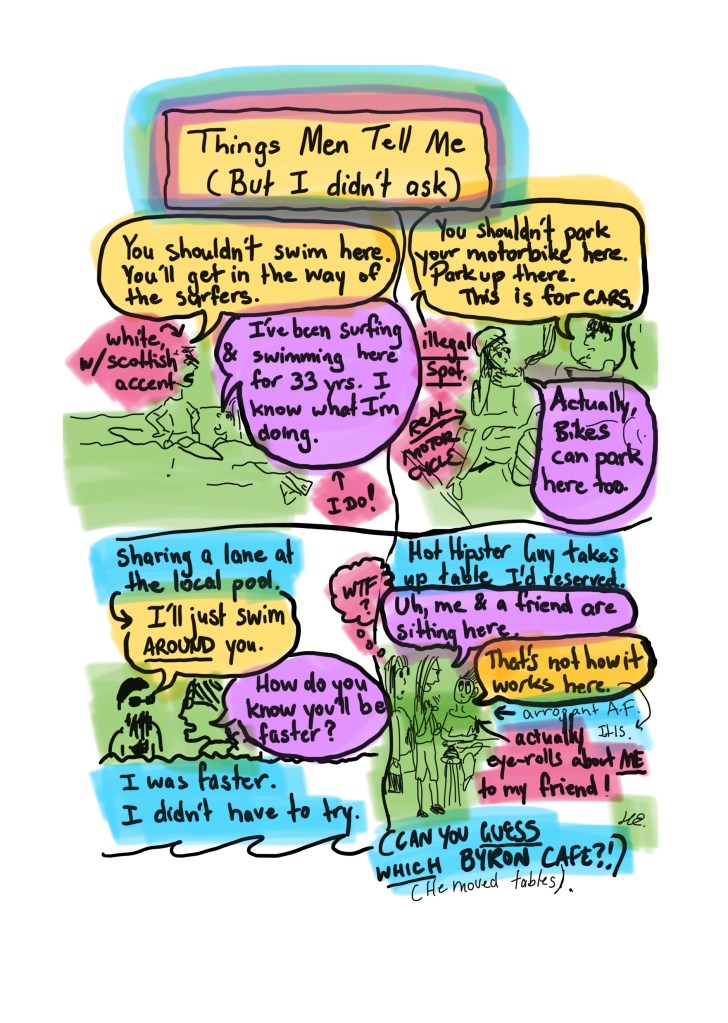 Things Men Tell Me
(But I didn't ask)
You shouldn't swim here.
You'll get in the way of
the surfers.
white,
w/scottish
accent
I've been surfing
& swimming here
for 33 yrs. I
know what I'm
doing.
I DO!
You shouldn't park
your motorbike here.
Park up there.
This is for CARS.
illegal
spot.
REAL
MOTOR
CYCLE
Actually,
Bikes
can park
here too.
Sharing a lane at
the local pool.
I'll just swim
AROUND you.
How do you
know you'll be
faster?
I was faster.
I didn't have to try.
Hot Hipster Guy takes
up table I'd reserved.
WTF
?
Uh, me & a friend are
sitting here.
That's not how it
works here.
arrogant A.F.
It IS.
actually
eye-rolls about ME
to my friend!
(CAN YOU GUESS
WHICH BYRON CAFE?!)
(He moved tables).